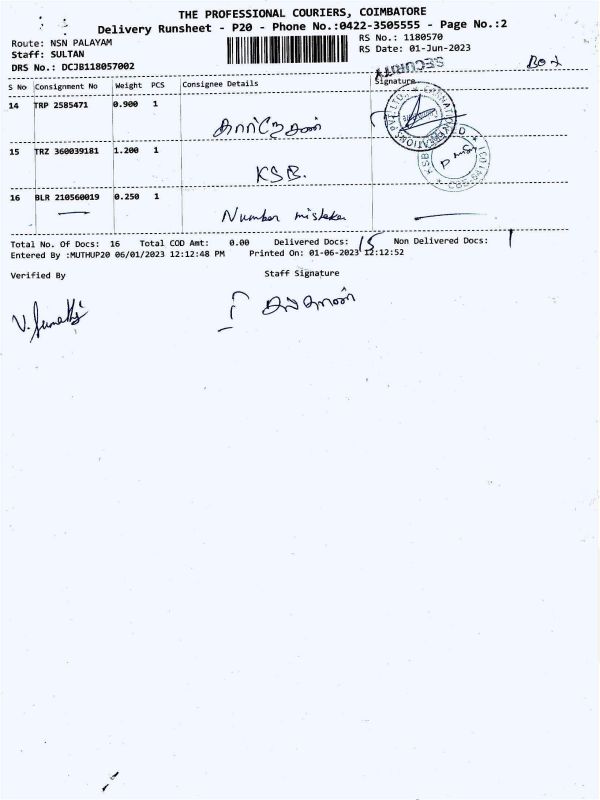 THE PROFESSIONAL COURIERS, COIMBATORE
Delivery Runsheet - P20 - Phone No.:0422-3505555 - Page No.:2
Route: NSN PALAYAM
RS No.: 1180570
Staff: SULTAN
RS Date: 01-Jun-2023
DRS No.: DCJB118057002
SECURITY
S No Consignment No Weight PCS Consignee Details Signature
14 TRP 2585471 0.900 1
15 TRZ 360039181 1.200 1
KSB.
16 BLR 210560019 0.250 1
Number mistake
Total No. Of Docs: 16 Total COD Amt: 0.00 Delivered Docs: 15 Non Delivered Docs: 1
Entered By :MUTHUP20 06/01/2023 12:12:48 PM Printed On: 01-06-2023 12:12:52
Verified By Staff Signature